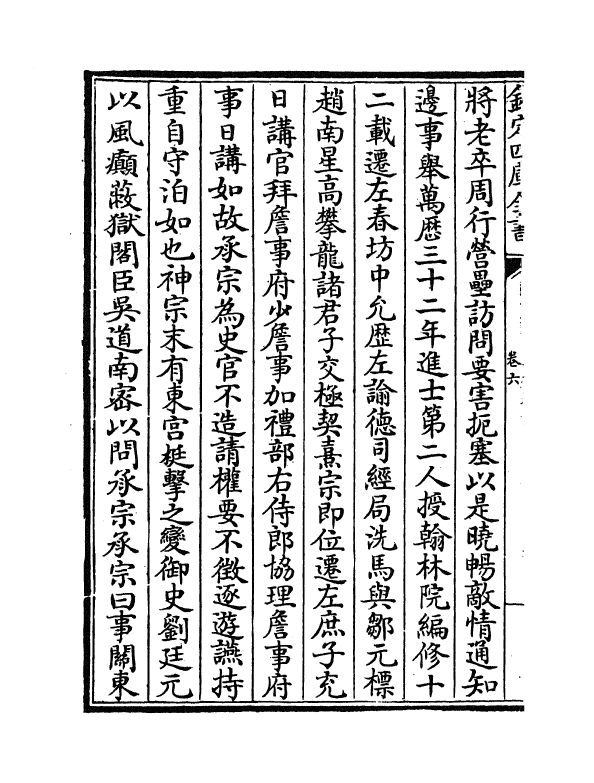 欽定四庫全書
卷六
將老卒周行營壘訪問要害扼塞以是曉暢敵情通知
邊事舉萬歷三十二年進士第二人授翰林院編修十
二載遷左春坊中允歴左諭德司經局洗馬與鄒元標
趙南星高攀龍諸君子交極契熹宗即位遷左庶子充
日講官拜詹事府少詹事加禮部右侍郎協理詹事府
事日講如故承宗為史官不造請權要不徵逐遊讌持
重自守泊如也神宗末有東宫梃擊之變御史劉廷元
以風癲蔽獄閣臣吳道南密以問承宗承宗曰事關東